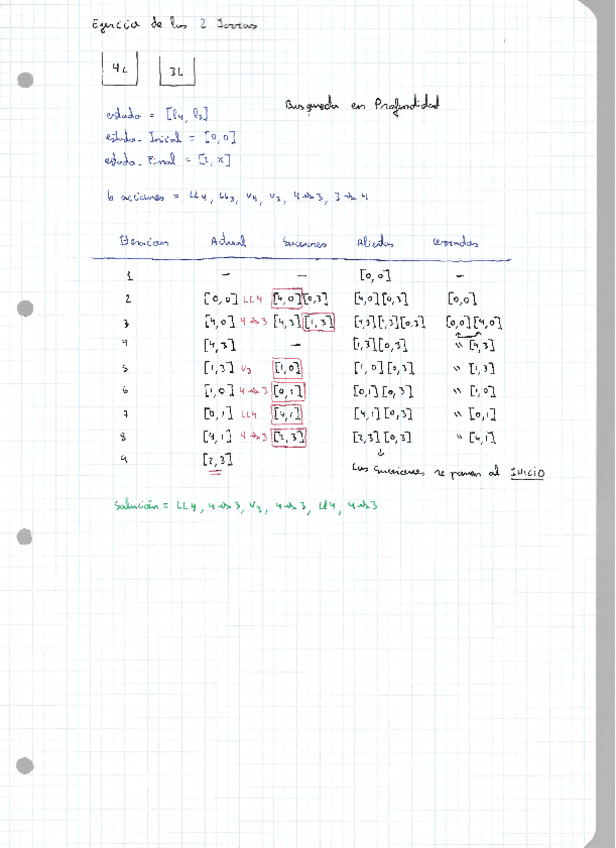 Ejercicio de las 2 Jarras
4L 3L
Busqueda en Profundidad
estado = [l4, l3]
estado_Inicial = [0,0]
estado_Final = [2, x]
6 acciones = LL4, LL3, V4, V3, 4->3, 3->4
Iteracion Actual Sucesores Abiertos Cerrados
1 - - [0,0] -
2 [0,0] LL4 [4,0][0,3] [4,0][0,3] [0,0]
3 [4,0] 4->3 [4,3][1,3] [4,3][1,3][0,3] [0,0][4,0]
4 [4,3] - [1,3][0,3] " [4,3]
5 [1,3] V3 [1,0] [1,0][0,3] " [1,3]
6 [1,0] 4->3 [0,1] [0,1][0,3] " [1,0]
7 [0,1] LL4 [4,1] [4,1][0,3] " [0,1]
8 [4,1] 4->3 [2,3] [2,3][0,3] " [4,1]
9 [2,3]
Los sucesores se ponen al INICIO
Solución = LL4, 4->3, V3, 4->3, LL4, 4->3